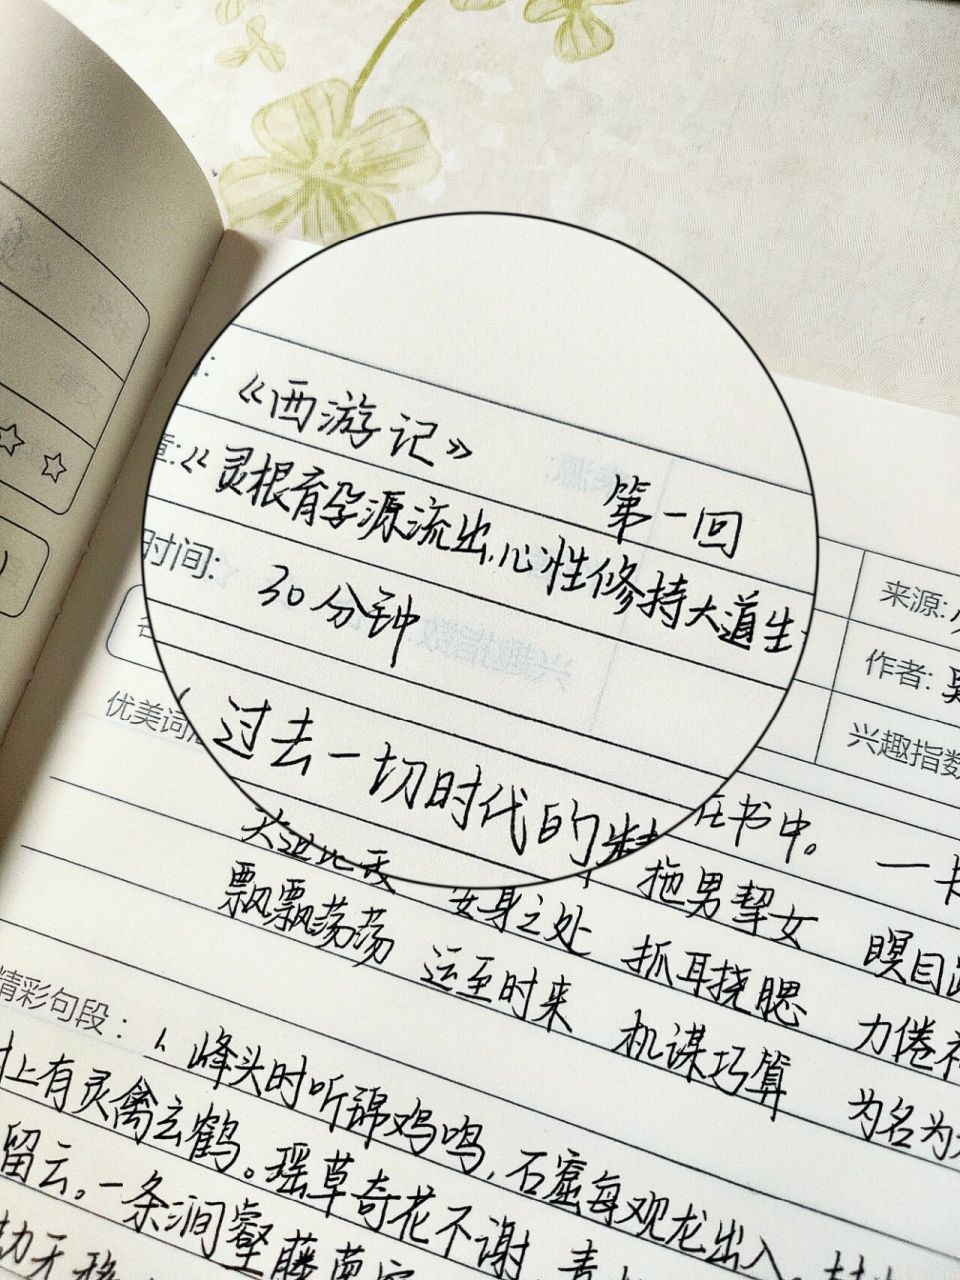 《西游记》
第一回
来源:
章:《灵根育孕源流出,心性修持大道生
作者:
时间: 30分钟
兴趣指数
优美词
过去一切时代的精 在书中。 一
安身之处 拖男挈女 瞑目
飘飘荡荡 运至时来 抓耳挠腮 力倦
机谋巧算 为名为
精彩句段:
1、峰头时听锦鸡鸣,石窟每观龙出入。
上有灵禽玄鹤。瑶草奇花不谢,青
留云。一条涧壑藤萝密
劫无移